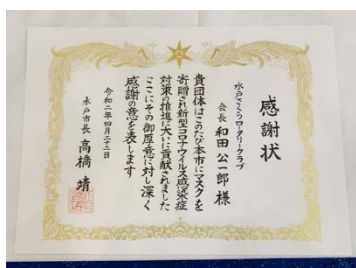 感謝状
水戸さくらロータリークラブ
会長 和田公一郎 様
貴団体はこのたび本市にマスクを
寄贈され新型コロナウイルス感染症
対策の推進に大いに貢献されました
ここにその御厚意に対し深く
感謝の意を表します
令和二年四月二十三日
水戸市長 高橋 靖